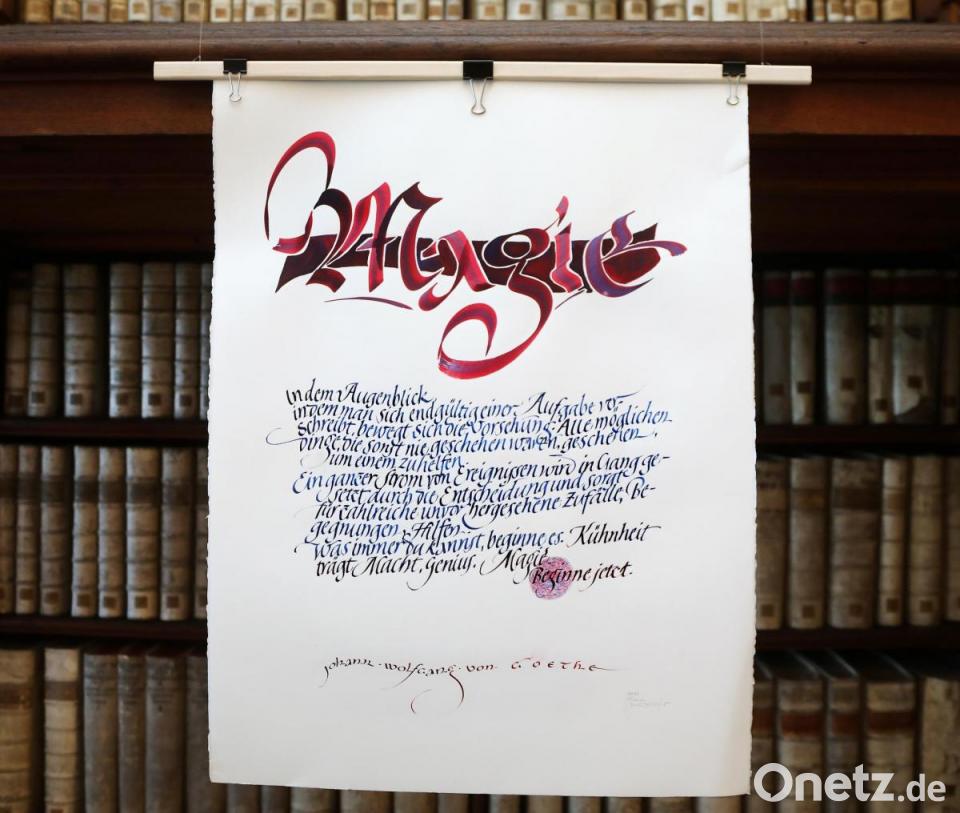 Magie
In dem Augenblick
in dem man sich endgültig einer Aufgabe ver-
schreibt, bewegt sich die Vorsehung. Alle möglichen
Dinge, die sonst nie geschehen wären, geschehen,
um einem zu helfen.
Ein ganzer Strom von Ereignissen wird in Gang ge-
setzt durch die Entscheidung und sorgt
für zahlreiche unvorhergesehene Zufälle, Be-
gegnungen & Hilfen.
Was immer du kannst, beginne es. Kühnheit
trägt Macht, Genius, Magie.
Beginne jetzt.
Johann · Wolfgang · von · Goethe
Onetz.de